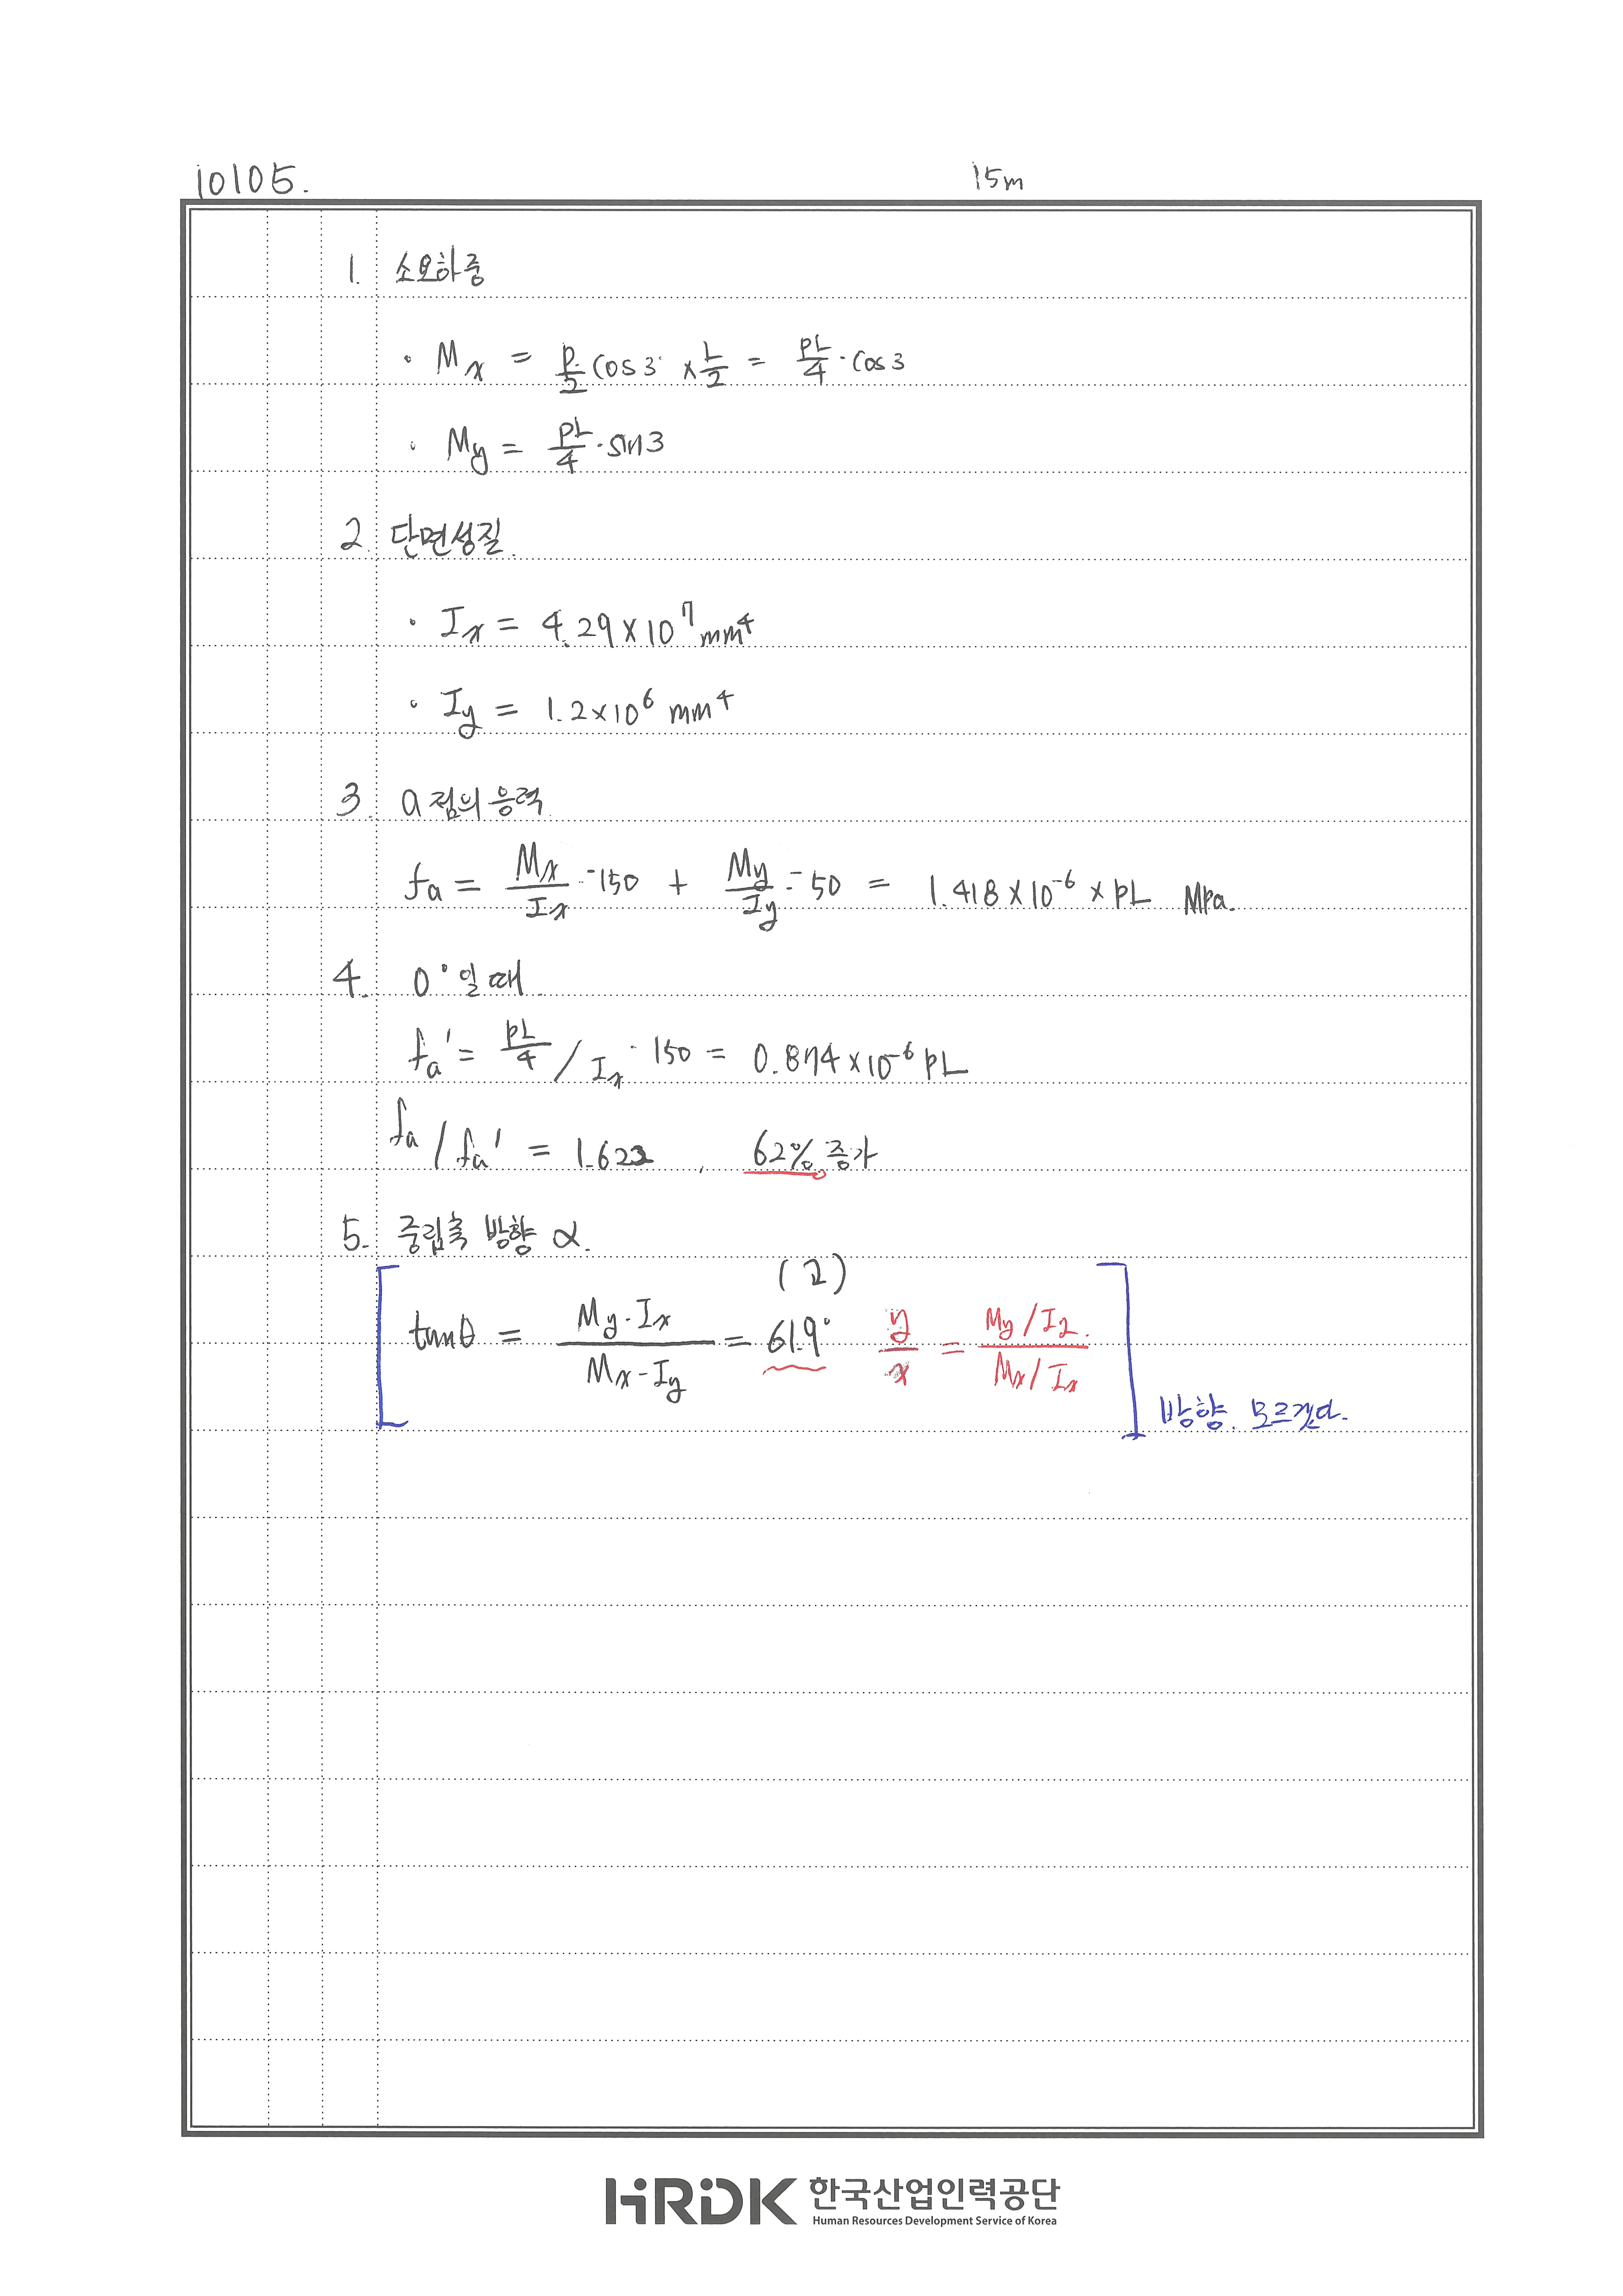 10105.
15m
1. 소요하중
· Mx = P/2 cos3° × L/2 = PL/4 · cos3
· My = PL/4 · sin3
2. 단면성질.
· Ix = 4.29×10⁷ mm⁴
· Iy = 1.2×10⁶ mm⁴
3. a점의 응력.
fa = Mx/Ix · 150 + My/Iy · 50 = 1.418×10⁻⁶ × PL MPa.
4. 0°일 때
fa' = PL/4 / Ix · 150 = 0.874×10⁻⁶ PL
fa / fa' = 1.622 , 62% 증가
5. 중립축 방향 α.
tanθ = My·Ix / Mx-Iy = 61.9° y/x = My/I2. / Mx/Ix
방향. 모르겠다.
HRDK 한국산업인력공단
Human Resources Development Service of Korea